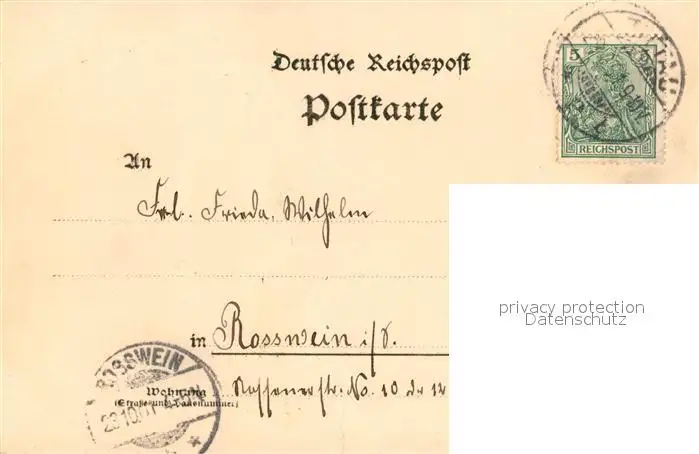 Deutsche Reichspost
Postkarte
5
REICHSPOST
An
Frl. Frieda Wilhelm
privacy protection
Datenschutz
in Rosswein i/S.
ROSSWEIN
Wohnung
(Straße und Hausnummer)
Nossenerstr. No. 10